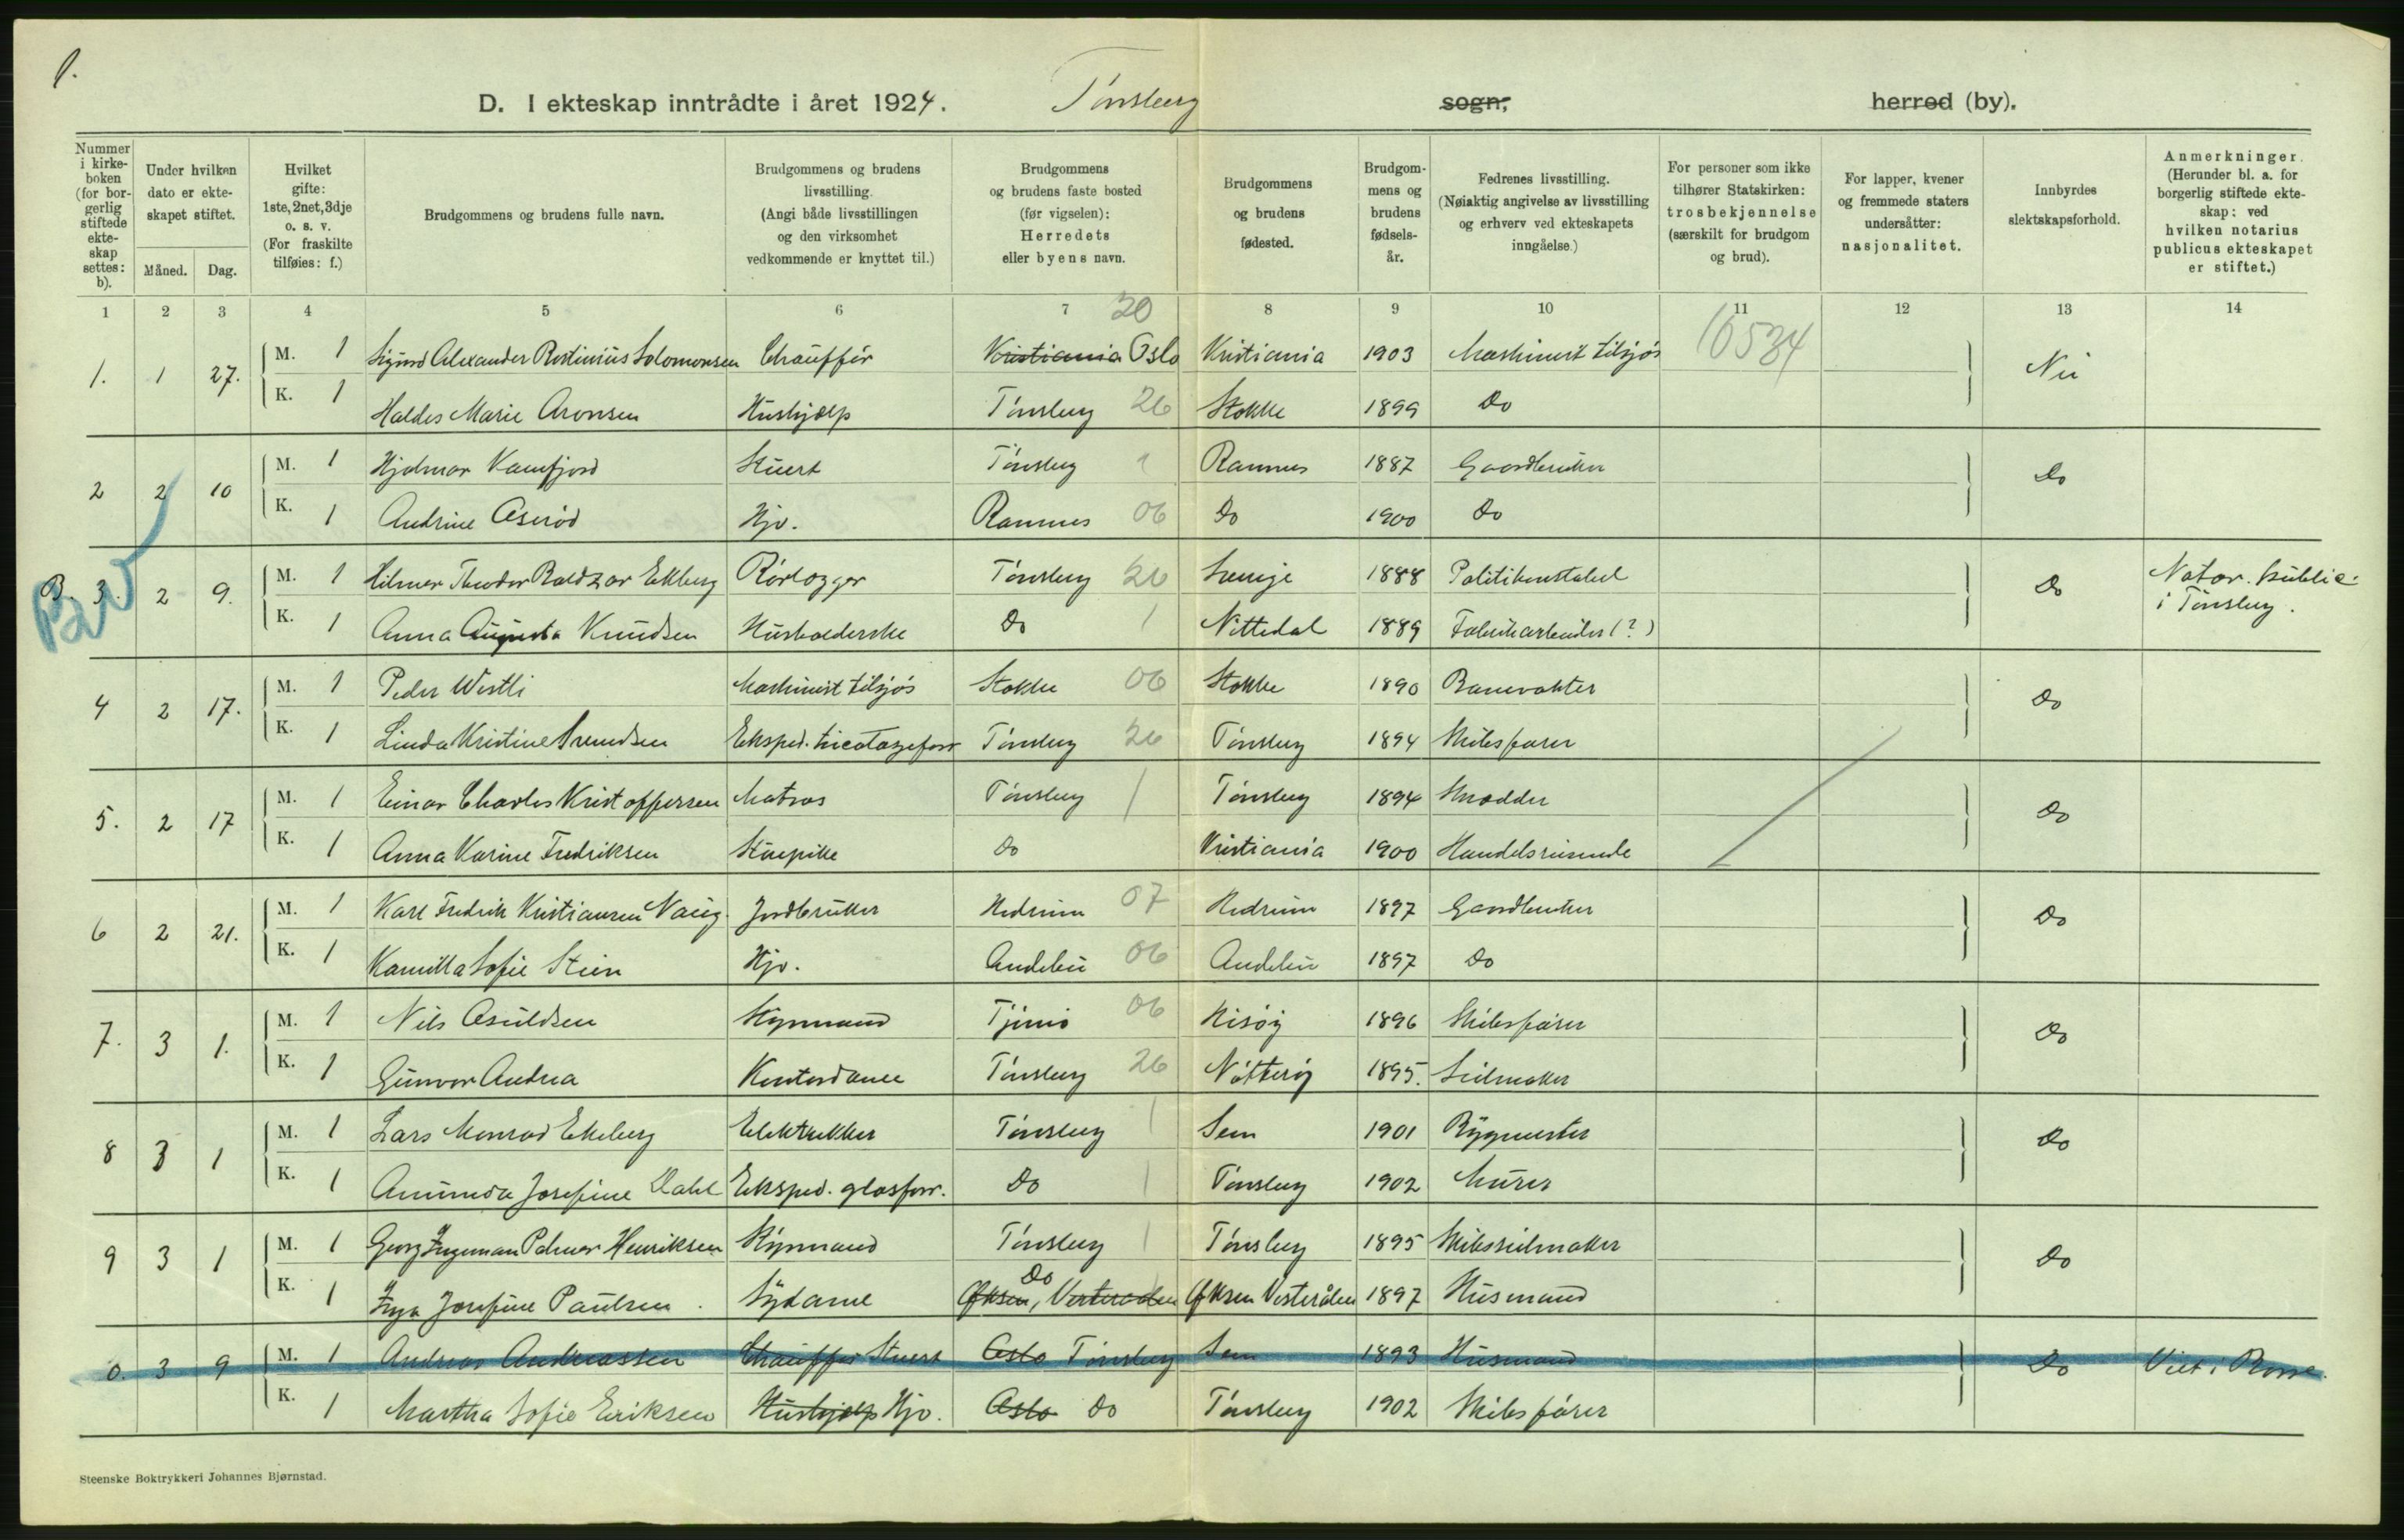 1.
D. I ekteskap inntrådte i året 1924. Tønsberg sogn, herred (by).
Nummer i kirkeboken (for borgerlig stiftede ekteskap settes: b).
Under hvilken dato er ekteskapet stiftet.
Måned. Dag.
Hvilket gifte: 1ste, 2net, 3dje o. s. v. (For fraskilte tilføies: f.)
Brudgommens og brudens fulle navn.
Brudgommens og brudens livsstilling. (Angi både livsstillingen og den virksomhet vedkommende er knyttet til.)
Brudgommens og brudens faste bosted (før vigselen): Herredets eller byens navn.
Brudgommens og brudens fødested.
Brudgommens og brudens fødselsår.
Fedrenes livsstilling. (Nøiaktig angivelse av livsstilling og erhverv ved ekteskapets inngåelse.)
For personer som ikke tilhører Statskirken: trosbekjennelse (særskilt for brudgom og brud).
For lapper, kvener og fremmede staters undersåtter: nasjonalitet.
Innbyrdes slektskapsforhold.
Anmerkninger. (Herunder bl. a. for borgerlig stiftede ekteskap: ved hvilken notarius publicus ekteskapet er stiftet.)
1 2 3 4 5 6 7 8 9 10 11 12 13 14
20 10534
1. 1 27. M. 1 Sigurd Alexander Rostinius Solomonsen Chauffør Kristiania Oslo Kristiania 1903 Maskinist tilsjøs Nei
K. 1 Haldis Marie Aronsen Hushjælp Tønsberg 26 Stokke 1899 Do
2 2 10 M. 1 Hjalmar Kamfjord Stuert Tønsberg 1 Ramnes 1887 Gaardbruker Do
K. 1 Andrine Aserød Hjv. Ramnes 06 Do 1900 Do
B. 3. 2 9. M. 1 Hilmer Theodor Baldzar Ekberg Rørlegger Tønsberg 26 Sverige 1888 Politikonstabel Do Notar. public. i Tønsberg.
K. 1 Anna Augusta Knudsen Husholderske Do 1 Nittedal 1889 Fabrikarbeider (?)
4 2 17. M. 1 Peder Westli Maskinist tilsjøs Stokke 06 Stokke 1890 Banevakter Do
K. 1 Linda Kristine Svendsen Eksped. tricotageforr Tønsberg 26 Tønsberg 1894 Skibsfører
5. 2 17 M. 1 Einar Charles Kristoffersen Matros Tønsberg 1 Tønsberg 1894 Skrædder Do
K. 1 Anna Karine Fredriksen Stuepike Do Kristiania 1900 Handelsreisende
6 2 21. M. 1 Karl Fredrik Kristiansen Naug. Jordbruker Hedrum 07 Hedrum 1897 Gaardbruker Do
K. 1 Kamilla Sofie Stein Hjv. Andebu 06 Andebu 1897 Do
7. 3 1. M. 1 Nils Asuldsen Styrmand Tjømø 06 Hisøy 1896 Skibsfører Do
K. 1 Gunvor Andrea Kontordame Tønsberg 26 Nøtterøy 1895. Seilmaker
8 3 1 M. 1 Lars Monrad Ekeberg Elektrikker Tønsberg 1 Sem 1901 Bygmester Do
K. 1 Amunda Josefine Dahl Eksped. glasforr. Do 1 Tønsberg 1902 Murer
9 3 1 M. 1 Georg Ingeman Palmer Henriksen Styrmand Tønsberg 1 Tønsberg 1895 Skibsseilmaker Do
K. 1 Inga Josefine Paulsen. Sydame Øksen, Vesteraalen Do Øksen Vesterålen 1897 Husmand
0. 3 9 M. 1 Andreas Andreassen Chauffør Stuert Oslo Tønsberg Sem 1893 Husmand Do Viet i Borre.
K. 1 Martha Sofie Eriksen Hushjælp Hjv. Oslo Do Tønsberg 1902 Skibsfører
Steenske Boktrykkeri Johannes Bjørnstad.